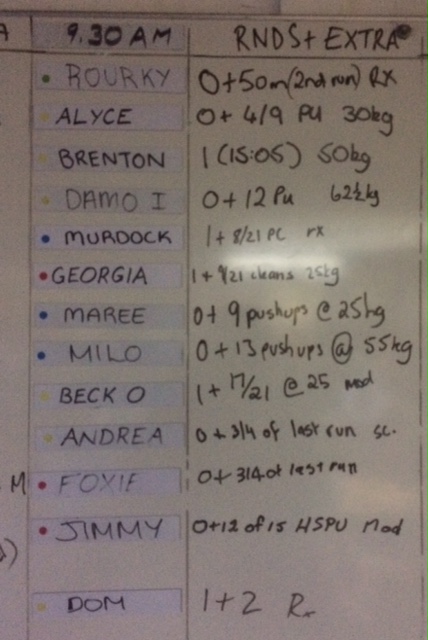 9.30 AM RNDS+ EXTRA
ROURKY 0+50m(2nd run) RX
ALYCE 0+ 4/9 PU 30kg
BRENTON 1 (15:05) 50kg
DAMO I 0+12 Pu 62½kg
MURDOCK 1+8/21 PC rx
GEORGIA 1+ 9/21 cleans 25kg
MAREE 0+ 9 pushups @ 25kg
MILO 0+13 pushups @ 55kg
BECK O 1+ 17/21 @ 25 mod
ANDREA 0+3/4 of last run sc.
M FOXIE 0+3/4 of last run
JIMMY 0+12 of 15 HSPU Mod
DOM 1+2 Rx